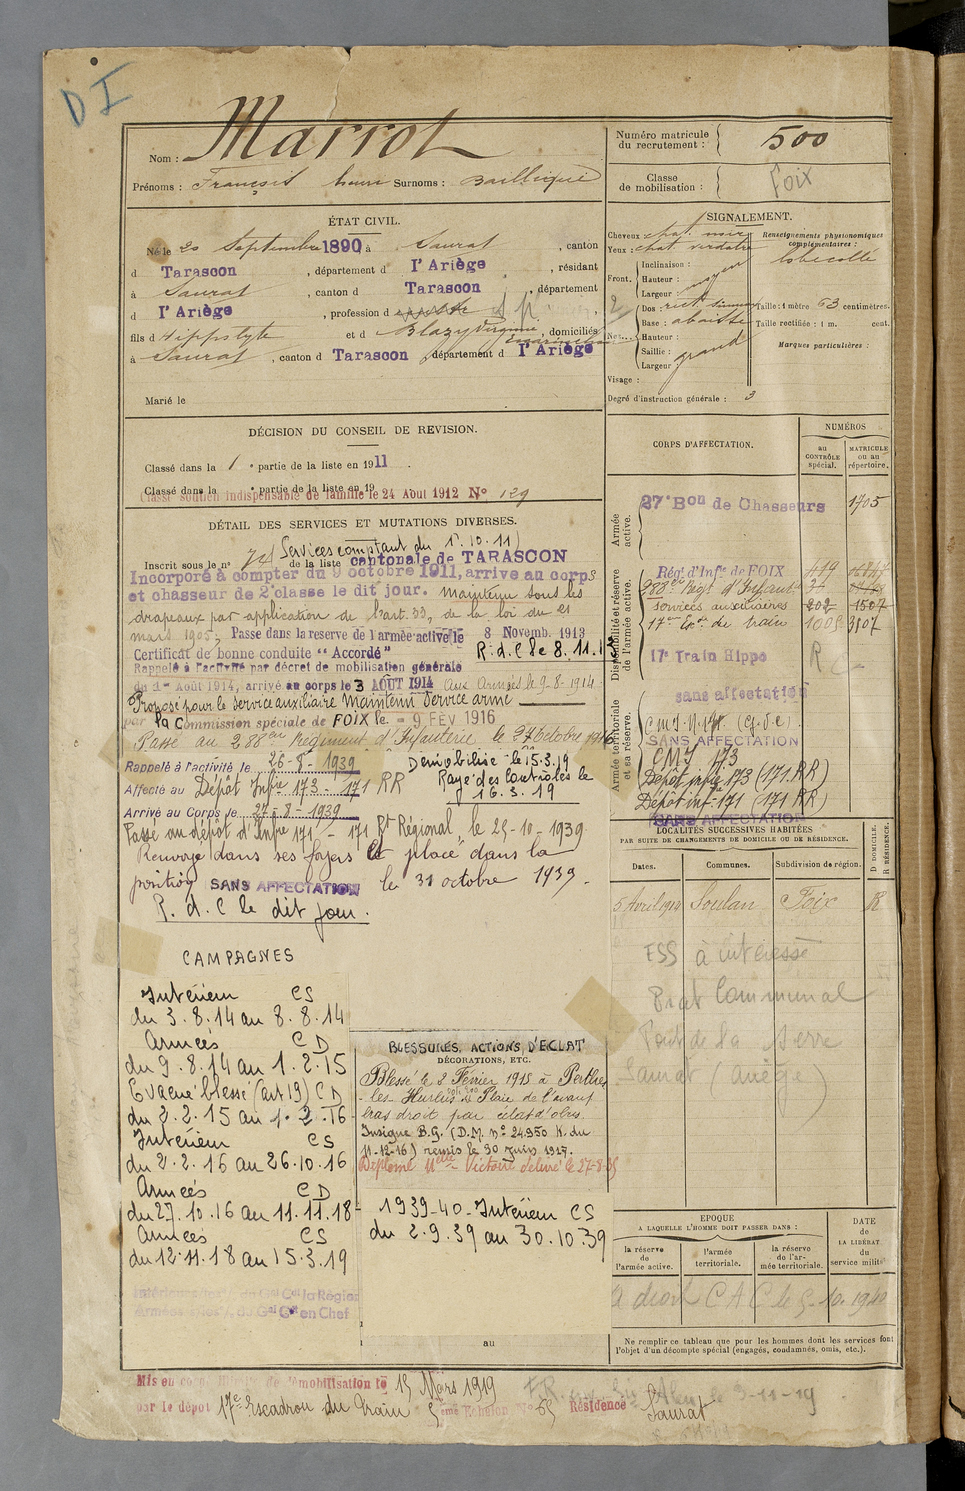 D I
Nom : Marrot
Prénoms : François Surnoms :
Numéro matricule du recrutement : 500
Classe de mobilisation : Foix
ÉTAT CIVIL.
Né le 20 Septembre 1890, à Saurat, canton
d Tarascon, département d l'Ariège, résidant
à Saurat, canton d Tarascon, département
d l'Ariège, profession d
fils d Hippolyte et d Blazy Virginie, domiciliés
à Saurat, canton d Tarascon, département d l'Ariège
Marié le
SIGNALEMENT.
Cheveux : chat. noir
Yeux : chat verdatre
Renseignements physionomiques complémentaires :
lobe collé
Front.
Inclinaison :
Hauteur : moyen
Largeur :
Nez
Dos : rect. sinueux
Base : abaissée
Hauteur :
Saillie : grand
Largeur
Taille : 1 mètre 63 centimètres.
Taille rectifiée : 1 m. cent.
Marques particulières :
Visage :
Degré d'instruction générale : 3
DÉCISION DU CONSEIL DE REVISION.
Classé dans la 1e partie de la liste en 1911.
Classé dans la e partie de la liste en 19
Classé soutien indispensable de famille le 24 Aout 1912 No 129
DÉTAIL DES SERVICES ET MUTATIONS DIVERSES.
(Services comptant du 1er.10.11)
Inscrit sous le n° de la liste cantonale de TARASCON
Incorporé à compter du 9 octobre 1911, arrive au corps
et chasseur de 2e classe le dit jour. Maintenu sous les
drapeaux par application de l'art. 33, de la loi du 21
mars 1905, Passe dans la reserve de l'armée active le 8 Novemb. 1913
Certificat de bonne conduite "Accordé" R.d.C le 8.11.13
Rappelé à l'activité par décret de mobilisation générale
du 1er Août 1914, arrivé au corps le 3 AOUT 1914 Aux Armées le 9-8-1914
Proposé pour le service auxiliaire Maintenu service armé
par la Commission spéciale de FOIX le - 9 FEV 1916
Passé au 288eme Régiment d'Infanterie le 27 octobre 1916
Rappelé à l'activité le 26-8-1939
Affecté au Dépôt Infie 173 - 171 RR
Arrivé au Corps le 27-8-1939
Démobilisé le 15.3.19
Rayé des Contrôles le
16.3.19
Passé au dépôt d'Infie 171 - 171 Rt Régional, le 25-10-1939
Renvoyé dans ses foyers et placé dans la
position SANS AFFECTATION le 31 octobre 1939.
R.d.C le dit jour.
CAMPAGNES
Intérieur CS
du 3.8.14 au 8.8.14
Armées CD
du 9.8.14 au 1.2.15
Evacué blessé (art 19) CD
du 2.2.15 au 1.2.16
Intérieur CS
du 2.2.16 au 26.10.16
Armées CD
du 27.10.16 au 11.11.18
Armées CS
du 12.11.18 au 15.3.19
BLESSURES, ACTIONS D'ECLAT
DÉCORATIONS, ETC.
Blessé le 2 Février 1915 à Perthes
les Hurlus Plaie de l'avant
bras droit par éclat d'obus.
Insigne B.G. (D.M. n° 24.950 K. du
11-12-16) remis le 30 juin 1927.
1939-40 - Intérieur CS
du 2.9.39 au 30.10.39
au
CORPS D'AFFECTATION.
NUMÉROS
au CONTRÔLE spécial.
MATRICULE ou au répertoire.
Armée active.
27e Bon de Chasseurs 1705
Disponibilité et réserve de l'armée active.
Régt d'Infie de FOIX
288eme Régt d'Infant.
services auxiliaires 202 1507
17eme Eon du train 3107
17e Train Hippo
Armée territoriale et sa réserve.
sans affectation
SANS AFFECTATION
CMI 173
Dépôt infie 173 (171 RR)
Dépôt inf-171 (171 RR)
SANS AFFECTATION
LOCALITÉS SUCCESSIVES HABITÉES
PAR SUITE DE CHANGEMENTS DE DOMICILE OU DE RÉSIDENCE.
Dates. Communes. Subdivision de région. D DOMICILE. R RÉSIDENCE.
Soulan Foix R
à intéressé
Prat Communal
Saurat (Ariège)
EPOQUE
A LAQUELLE L'HOMME DOIT PASSER DANS :
la réserve de l'armée active.
l'armée territoriale.
la réserve de l'armée territoriale.
DATE de LA LIBÉRAT. du service milit.
A droit C A C le 5.10.1940
Ne remplir ce tableau que pour les hommes dont les services font
l'objet d'un décompte spécial (engagés, condamnés, omis, etc.).
Mis en congé illimité de démobilisation le 15 Mars 1919
par le dépôt 17e Escadron du Train 5eme Echelon No 65 Résidence Saurat